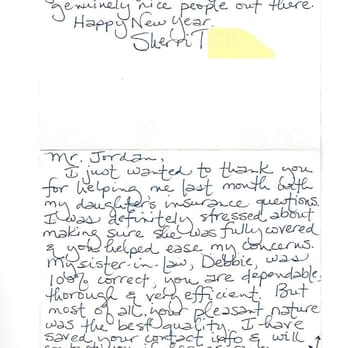 genuinely nice people out there.
Happy New Year.
Sherri T
Mr. Jordan,
I just wanted to thank you
for helping me last month with
my daughter's insurance questions.
I was definitely stressed about
making sure she was fully covered
& you helped ease my concerns.
My sister-in-law, Debbie, was
100% correct, you are dependable,
thorough & very efficient. But
most of all, your pleasant nature
was the best quality. I have
saved your contact info & will